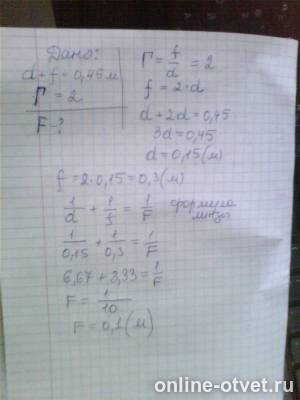 Дано:
d+f=0,45м
Г=2
F-?
Г=f/d=2
f=2·d
d+2d=0,45
3d=0,45
d=0,15(м)
f=2·0,15=0,3(м)
1/d+1/f=1/F формула линзы
1/0,15+1/0,3=1/F
6,67+3,33=1/F
F=1/10
F=0,1(м)
online-otvet.ru